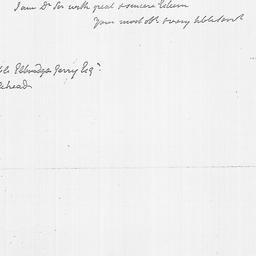 I am Dr Sir with great & sincere Esteem
Your most obt & very hble Servt
ble Elbridge Gerry Esqr
lehead